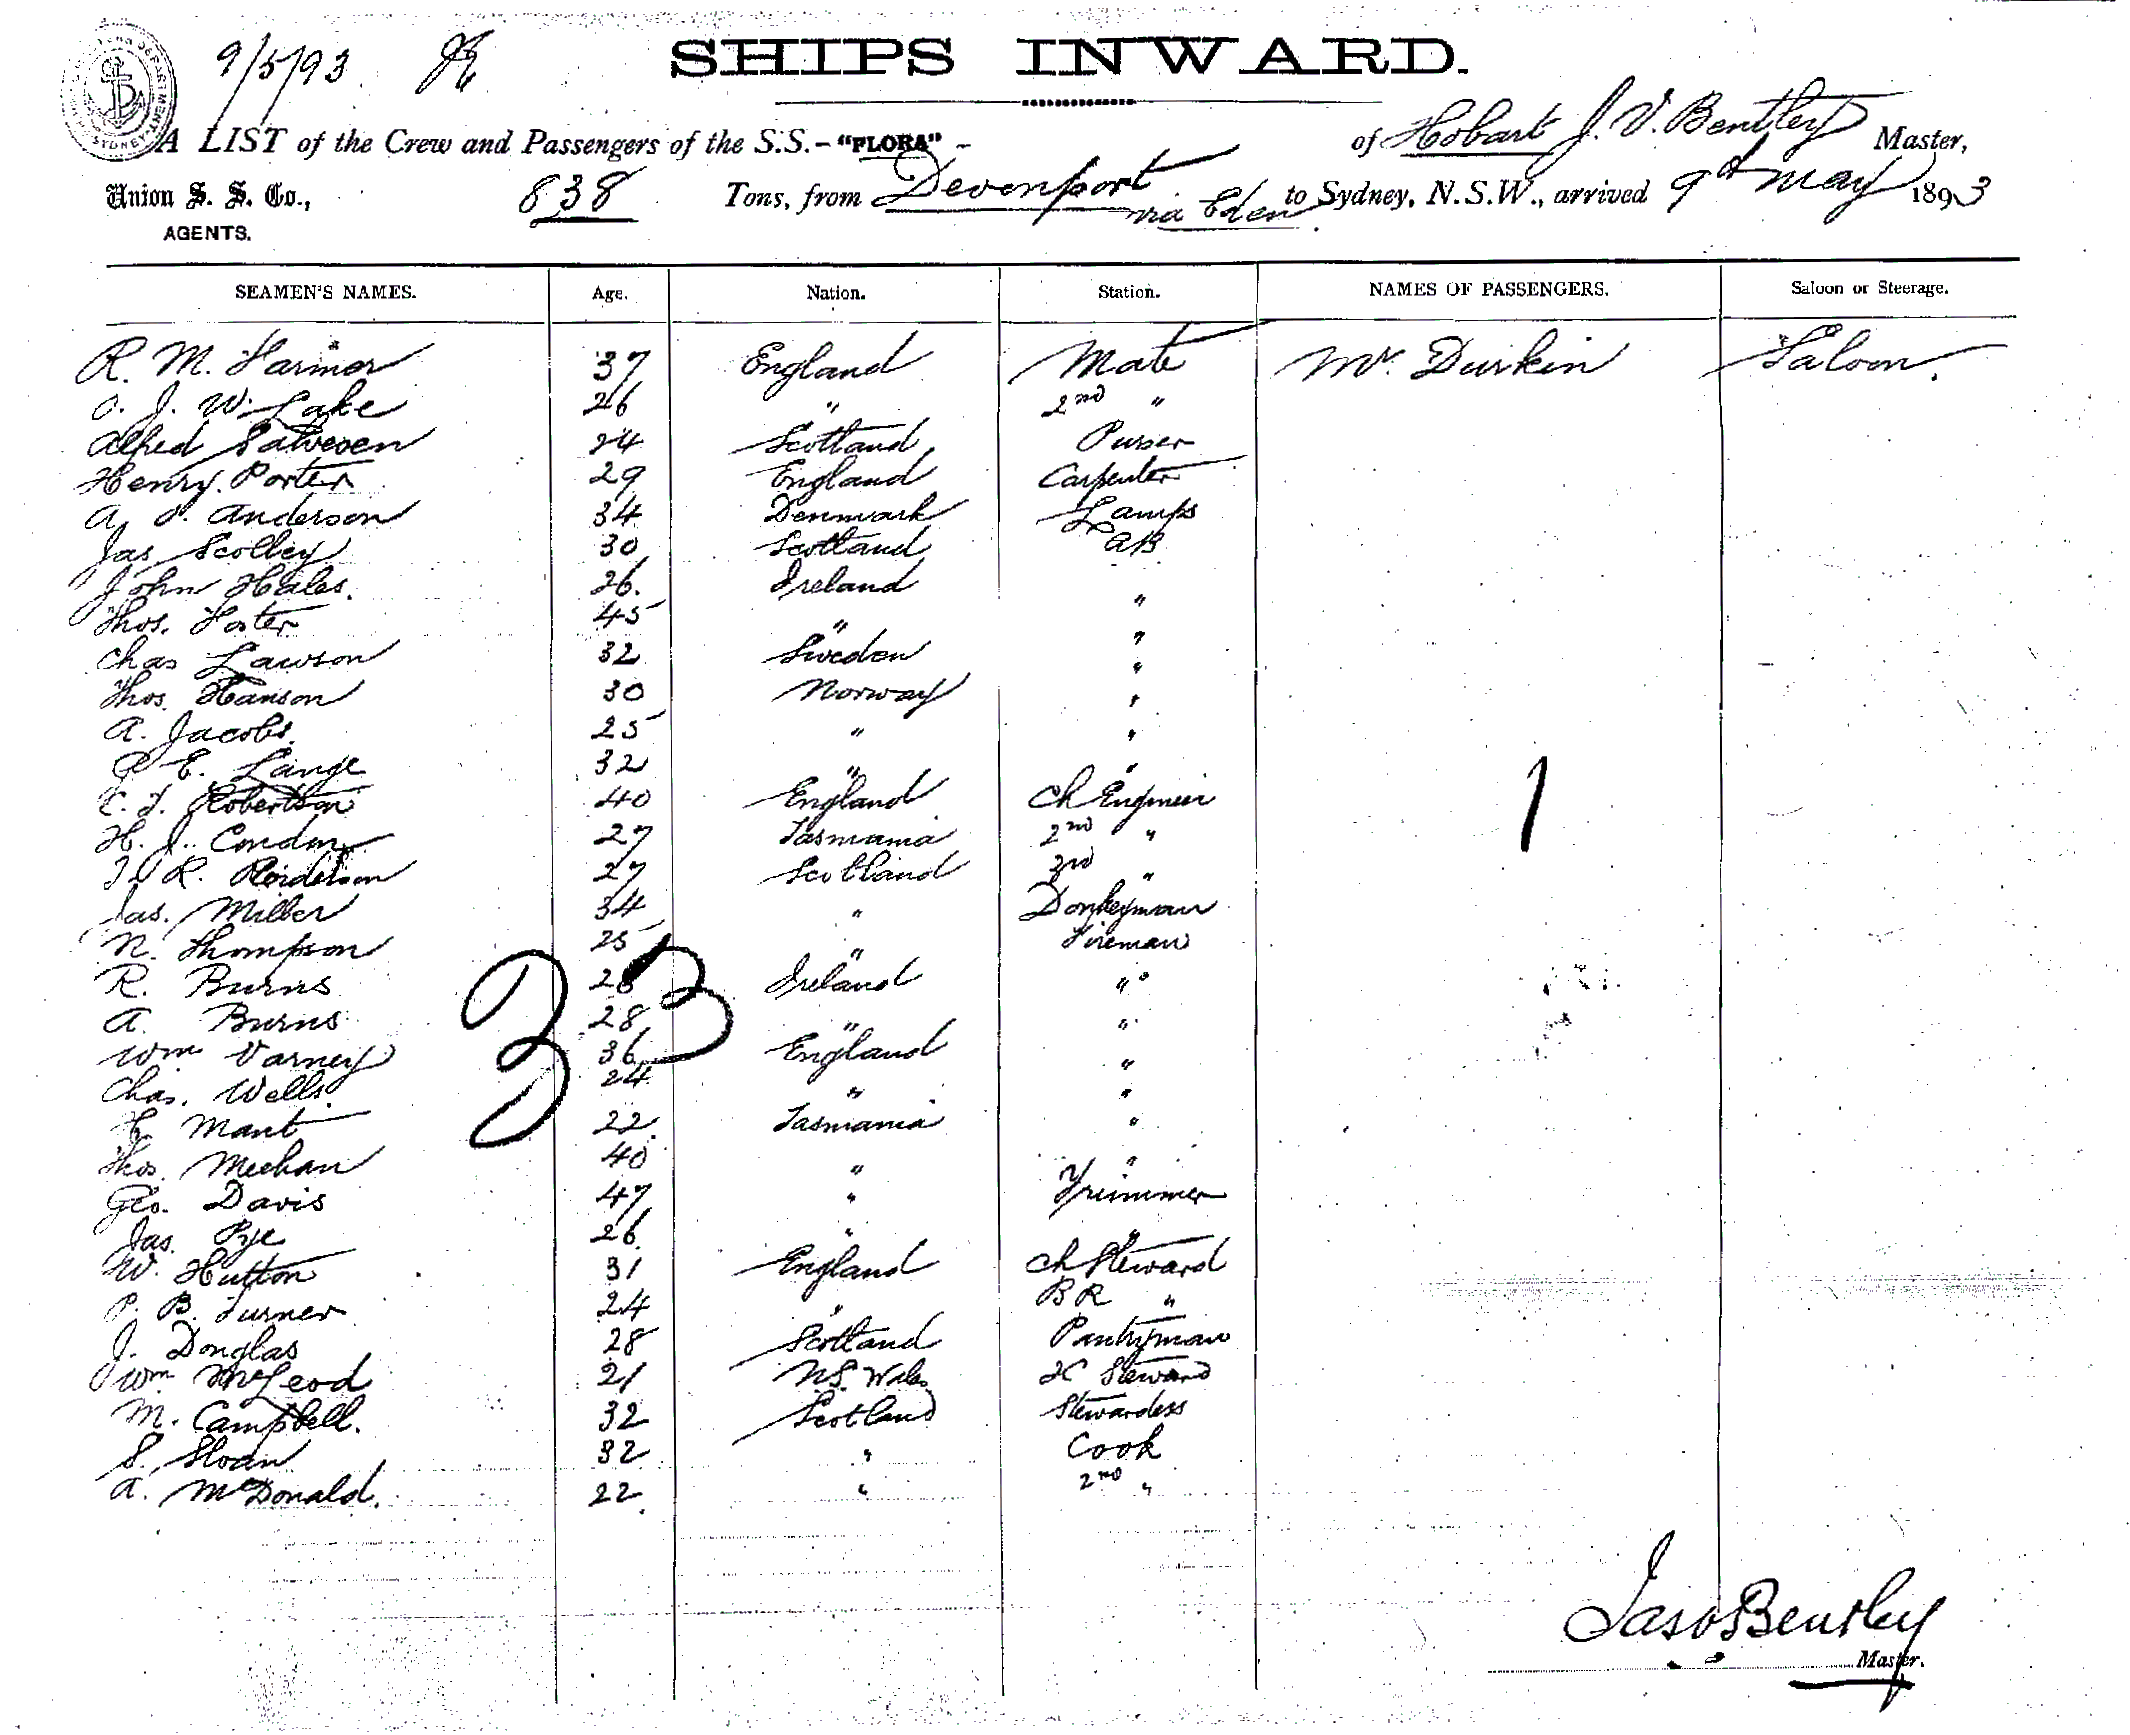 9/5/93
SHIPS INWARD.
A LIST of the Crew and Passengers of the S.S.- "FLORA" - of Hobart J. V. Bentley Master,
Union S. S. Co., 838 Tons, from Devonport via Eden to Sydney, N.S.W., arrived 9th May 1893
AGENTS.
SEAMEN'S NAMES. Age. Nation. Station. NAMES OF PASSENGERS. Saloon or Steerage.
R. M. Farmer 37 England Mate Mr. Durkin Saloon.
J. W. Lake 26 " 2nd "
Alfred Salvesen 24 Scotland Purser
Henry Porter 29 England Carpenter
A. Anderson 34 Denmark Lamps
Jas Scolley 30 Scotland AB
John Hales. 26. Ireland "
Thos. Foster 45 " "
Chas Lawson 32 Sweden "
Thos. Hanson 30 Norway "
A. Jacobs. 25 " "
E. Lange 32 " "
Robertson 40 England Ch Engineer
H. J. Condon 27 Tasmania 2nd "
R. 27 Scotland 3rd "
Jas. Miller 34 " Donkeyman
N. Thompson 25 " Fireman
R. Burns 28 Ireland "
A. Burns 28 " "
Wm Varney 36 England "
Chas. Wells. 24 " "
Mant 22 Tasmania "
Thos. Meehan 40 " "
Geo. Davis 47 " Trimmer
Jas. Pye 26 " "
W. Hutton 31 England Ch Steward
P. B. Turner 24 " BR "
J. Douglas 28 Scotland Pantryman
Wm McLeod 21 N.S. Wales Steward
M. Campbell. 32 Scotland Stewardess
S. Sloan 32 " Cook
A. McDonald. 22 " 2nd "
33
1
Jas V Bentley
Master.